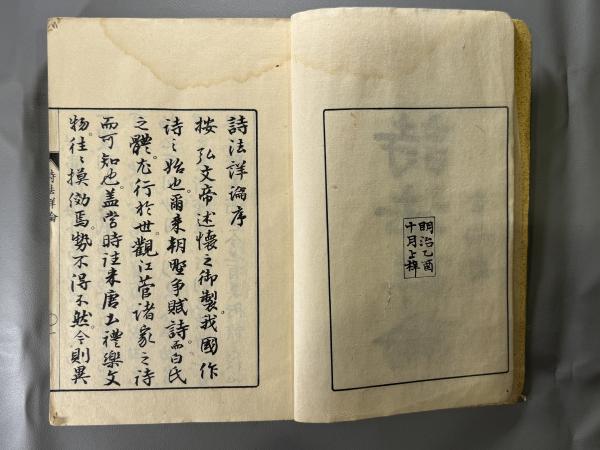 明治乙酉
十月上梓
詩法詳論序
按弘文帝述懷之御製我國作
詩之始也爾来朝野爭賦詩而白氏
之體尤行於世觀江菅諸家之詩
而可知也蓋當時往来唐土禮樂文
物往々摸倣焉勢不得不然今則異
詩法詳論